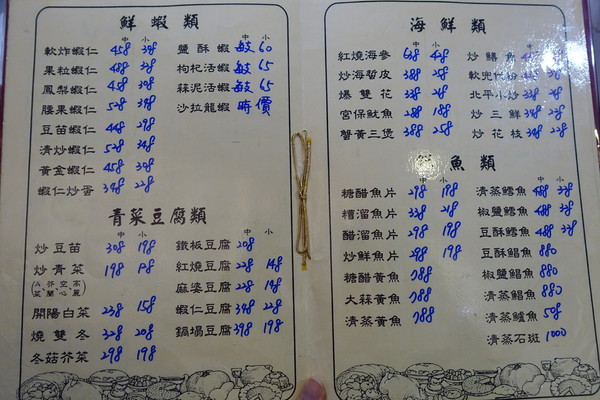 鮮蝦類
中 小 中 小
軟炸蝦仁 458 308 鹽酥蝦 每 60
果粒蝦仁 488 328 枸杞活蝦 每 65
鳳梨蝦仁 458 308 蒜泥活蝦 每 65
腰果蝦仁 528 348 沙拉龍蝦 時價
豆苗蝦仁 448 298
清炒蝦仁 528 348
黃金蝦仁 458 308
蝦仁炒蛋 348 228
青菜豆腐類
中 小 中 小
炒豆苗 308 198 鐵板豆腐 208
炒青菜 198 紅燒豆腐 228 148
麻婆豆腐 228 148
開陽白菜 238 158 蝦仁豆腐 348 228
燒雙冬 328 208 鍋塌豆腐 298 198
冬菇芥菜 298 198
海鮮類
中 小 中 小
紅燒海參 428 炒鱔魚
炒海蜇皮 388 258
爆雙花 338 218 北平小炒 338 218
宮保魷魚 288 188 炒三鮮 348 228
蟹黃三煲 388 258 炒花枝 348 228
鮮魚類
中 小 中 小
糖醋魚片 298 198 清蒸鱈魚 488 338
糟溜魚片 338 218 椒鹽鱈魚 488 338
醋溜魚片 298 198 豆酥鱈魚 488 338
炒鮮魚片 298 198 豆酥鯧魚 880
糖醋黃魚 788 椒鹽鯧魚 880
大蒜黃魚 788 清蒸鯧魚 880
清蒸黃魚 788 清蒸鱸魚 508
清蒸石斑 1000